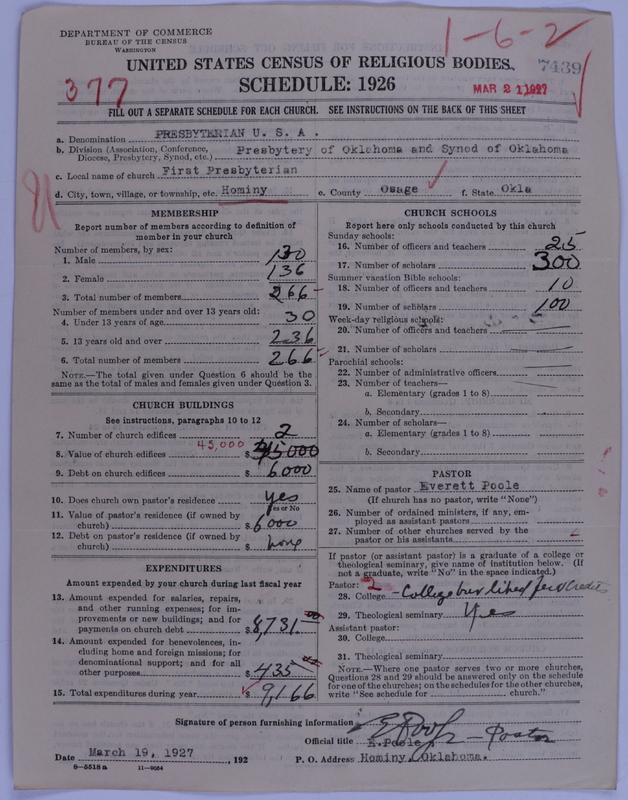 DEPARTMENT OF COMMERCE
BUREAU OF THE CENSUS
WASHINGTON
1-6-2
UNITED STATES CENSUS OF RELIGIOUS BODIES
7439
377
SCHEDULE: 1926
MAR 21 1927
FILL OUT A SEPARATE SCHEDULE FOR EACH CHURCH. SEE INSTRUCTIONS ON THE BACK OF THIS SHEET
a. Denomination PRESBYTERIAN U. S. A .
b. Division (Association, Conference, Diocese, Presbytery, Synod, etc.) Presbytery of Oklahoma and Synod of Oklahoma
c. Local name of church First Presbyterian
d. City, town, village, or township, etc. Hominy e. County Osage f. State Okla
MEMBERSHIP
Report number of members according to definition of
member in your church
Number of members, by sex:
1. Male 130
2. Female 136
3. Total number of members 266
Number of members under and over 13 years old:
4. Under 13 years of age 30
5. 13 years old and over 236
6. Total number of members 266
NOTE.—The total given under Question 6 should be the
same as the total of males and females given under Question 3.
CHURCH BUILDINGS
See instructions, paragraphs 10 to 12
7. Number of church edifices 2
45,000
8. Value of church edifices $45000
9. Debt on church edifices $6000
10. Does church own pastor's residence yes
Yes or No
11. Value of pastor's residence (if owned by
church) $6000
12. Debt on pastor's residence (if owned by
church) $ none
EXPENDITURES
Amount expended by your church during last fiscal year
13. Amount expended for salaries, repairs,
and other running expenses; for im-
provements or new buildings; and for
payments on church debt $8,731.00
14. Amount expended for benevolences, in-
cluding home and foreign missions; for
denominational support; and for all
other purposes $435
15. Total expenditures during year $9,166
CHURCH SCHOOLS
Report here only schools conducted by this church
Sunday schools:
16. Number of officers and teachers 25
17. Number of scholars 300
Summer vacation Bible schools:
18. Number of officers and teachers 10
19. Number of scholars 100
Week-day religious schools:
20. Number of officers and teachers
21. Number of scholars
Parochial schools:
22. Number of administrative officers
23. Number of teachers—
a. Elementary (grades 1 to 8)
b. Secondary
24. Number of scholars—
a. Elementary (grades 1 to 8)
b. Secondary
PASTOR
25. Name of pastor Everett Poole
(If church has no pastor, write "None")
26. Number of ordained ministers, if any, em-
ployed as assistant pastors
27. Number of other churches served by the
pastor or his assistants
If pastor (or assistant pastor) is a graduate of a college or
theological seminary, give name of institution below. (If
not a graduate, write "No" in the space indicated.)
Pastor: 2
28. College - College but liked few credits
29. Theological seminary Yes
Assistant pastor:
30. College
31. Theological seminary
NOTE.—Where one pastor serves two or more churches,
Questions 28 and 29 should be answered only on the schedule
for one of the churches; on the schedules for the other churches,
write "See schedule for church."
Signature of person furnishing information E Poole
Official title E. Poole - Pastor
Date March 19, 1927, 192 P. O. Address Hominy, Oklahoma.
8—5518 a 11—9054